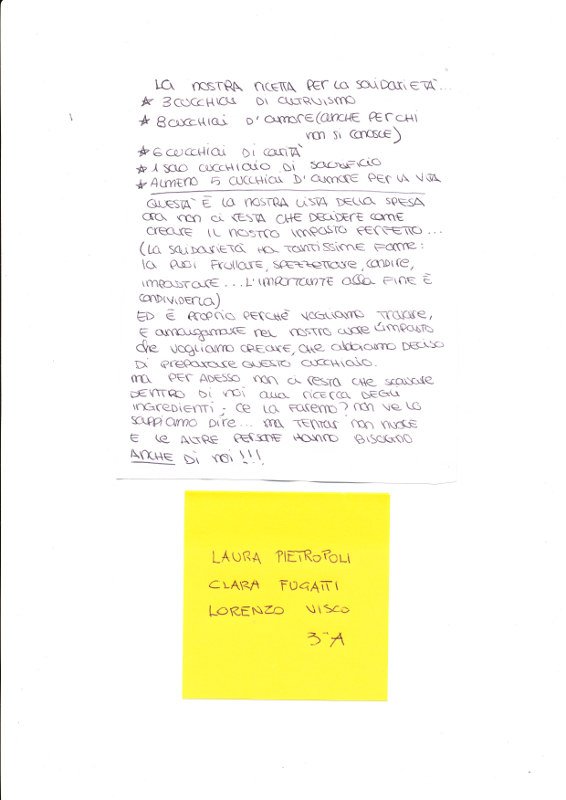 LA NOSTRA RICETTA PER LA SOLIDARIETÀ...
★ 3 CUCCHIAI DI ALTRUISMO
★ 8 CUCCHIAI D'AMORE (ANCHE PER CHI
NON SI CONOSCE)
★ 6 CUCCHIAI DI CARITÀ
★ 1 SOLO CUCCHIAIO DI SACRIFICIO
★ ALMENO 5 CUCCHIAI D'AMORE PER LA VITA
QUESTA È LA NOSTRA LISTA DELLA SPESA
ORA NON CI RESTA CHE DECIDERE COME
CREARE IL NOSTRO IMPASTO PERFETTO...
(LA SOLIDARIETÀ HA TANTISSIME FORME:
LA PUOI FRULLARE, SPEZZETTARE, CONDIRE,
IMPASTARE... L'IMPORTANTE ALLA FINE È
CONDIVIDERLA)
ED È PROPRIO PERCHÈ VOGLIAMO TROVARE,
E AMALGAMARE NEL NOSTRO CUORE L'IMPASTO
CHE VOGLIAMO CREARE, CHE ABBIAMO DECISO
DI PREPARARE QUESTO CUCCHIAIO.
MA PER ADESSO NON CI RESTA CHE SCAVARE
DENTRO DI NOI ALLA RICERCA DEGLI
INGREDIENTI; CE LA FAREMO? NON VE LO
SAPPIAMO DIRE... MA TENTAR NON NUOCE
E LE ALTRE PERSONE HANNO BISOGNO
ANCHE DI NOI!!!
LAURA PIETROPOLI
CLARA FUGATTI
LORENZO VISCO
3ªA